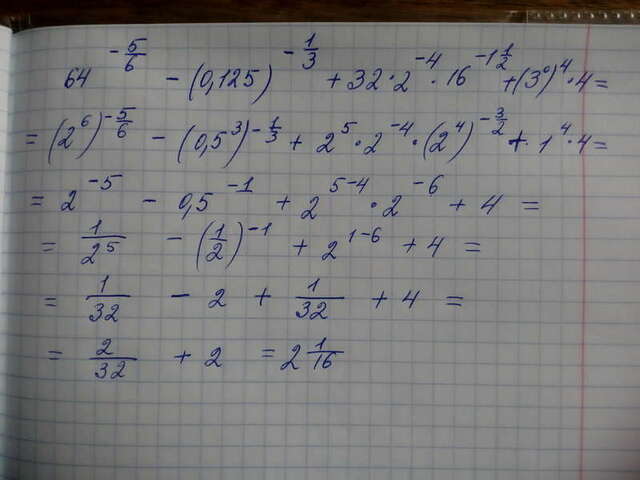 64^(-5/6) - (0,125)^(-1/3) + 32 · 2^(-4) · 16^(-1 1/2) + (3^0)^4 · 4 =
= (2^6)^(-5/6) - (0,5^3)^(-1/3) + 2^5 · 2^(-4) · (2^4)^(-3/2) + 1^4 · 4 =
= 2^(-5) - 0,5^(-1) + 2^(5-4) · 2^(-6) + 4 =
= 1/2^5 - (1/2)^(-1) + 2^(1-6) + 4 =
= 1/32 - 2 + 1/32 + 4 =
= 2/32 + 2 = 2 1/16